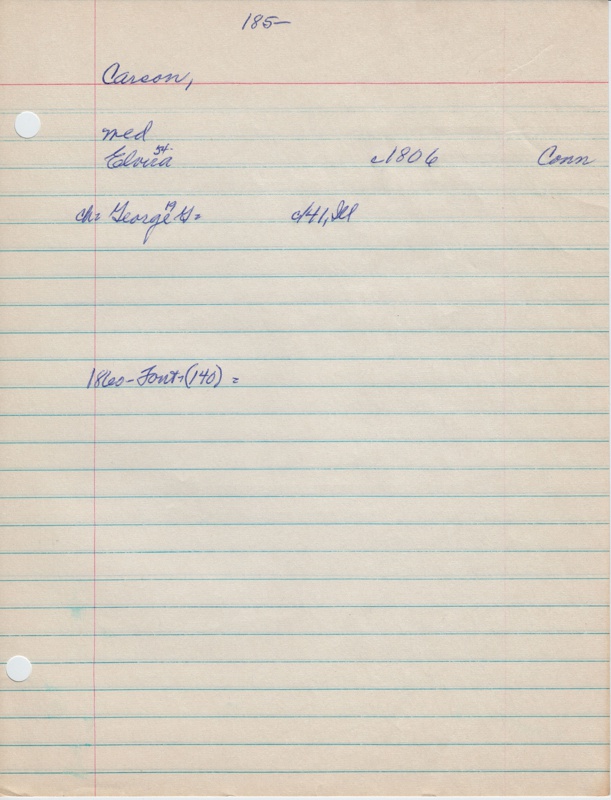 185-
Carson,
med
Elvira 54 c1806 Conn
ch= George G= 19 c/41, Ill
1860-Font=(140) =